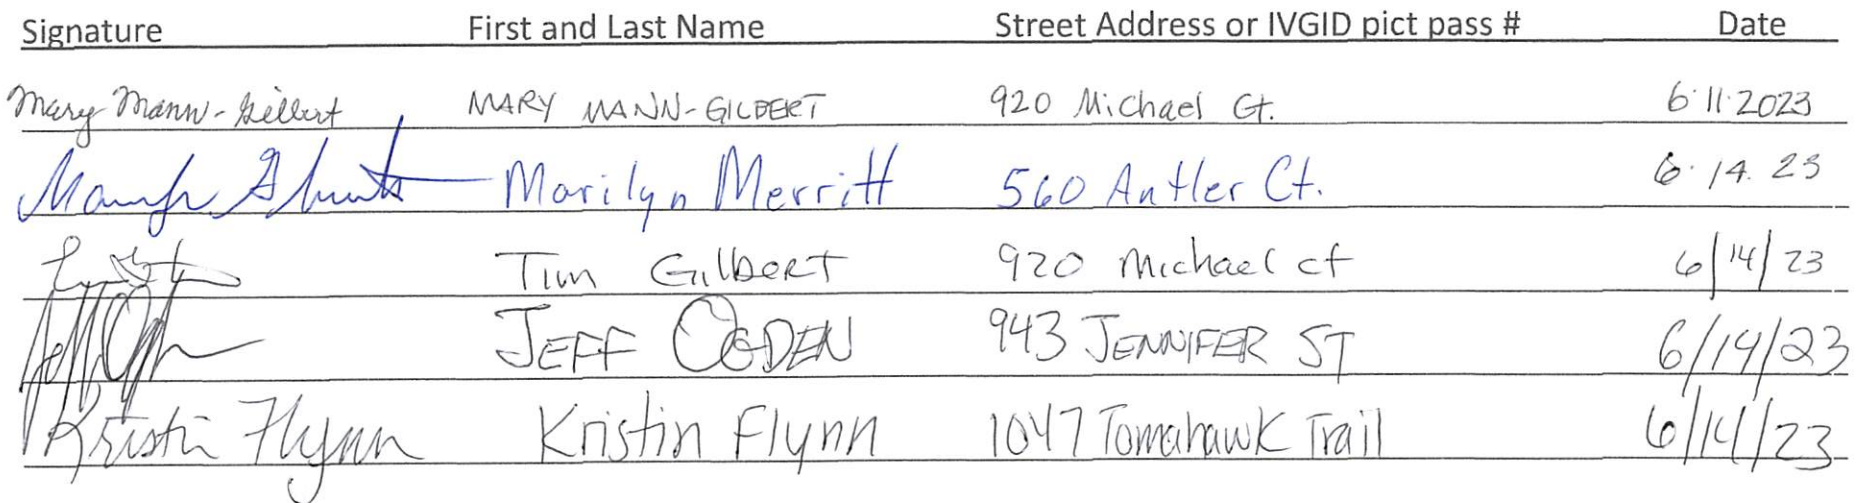 Signature First and Last Name Street Address or IVGID pict pass # Date
Mary Mann-Gilbert MARY MANN-GILBERT 920 Michael Ct. 6.11.2023
Marilyn Merritt 560 Antler Ct. 6.14.23
Tim Gilbert 920 Michael ct 6/14/23
JEFF OGDEN 943 JENNIFER ST 6/14/23
Kristin Flynn Kristin Flynn 1047 Tomahawk Trail 6/14/23